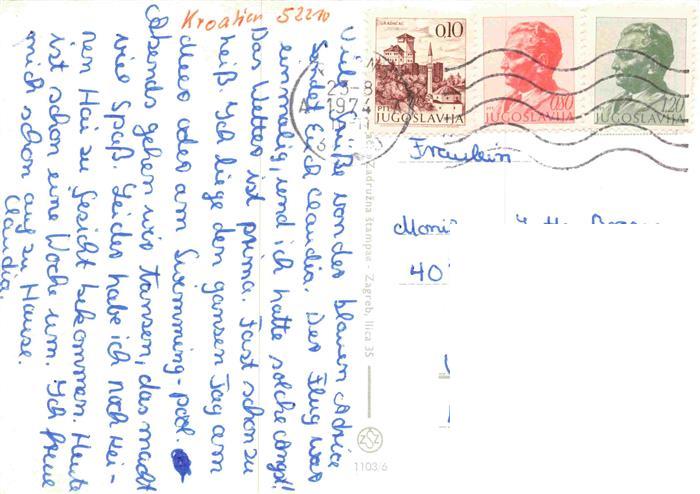 Kroatien 52210
Viele Grüße von der blauen Adria
Sendet Euch Claudia. Der Flug war
einmalig, und ich hatte solche Angst!
Das Wetter ist prima. Fast schon zu
heiß. Ich liege den ganzen Tag am
Meer oder am Swimming-pool.
Abends gehen wir tanzen, das macht
viel Spaß. Leider habe ich noch kei-
nen Hai zu Gesicht bekommen. Heute
ist schon eine Woche um. Ich freue
mich schon auf zu Hause.
Claudia.
GRADAČAC
0,10
PTT
JUGOSLAVIJA
0,80
JUGOSLAVIJA
1,20
JUGOSLAVIJA
1974
Zadružna štampa - Zagreb, Ilica 35
1103/6
Fräulein
Moni
40